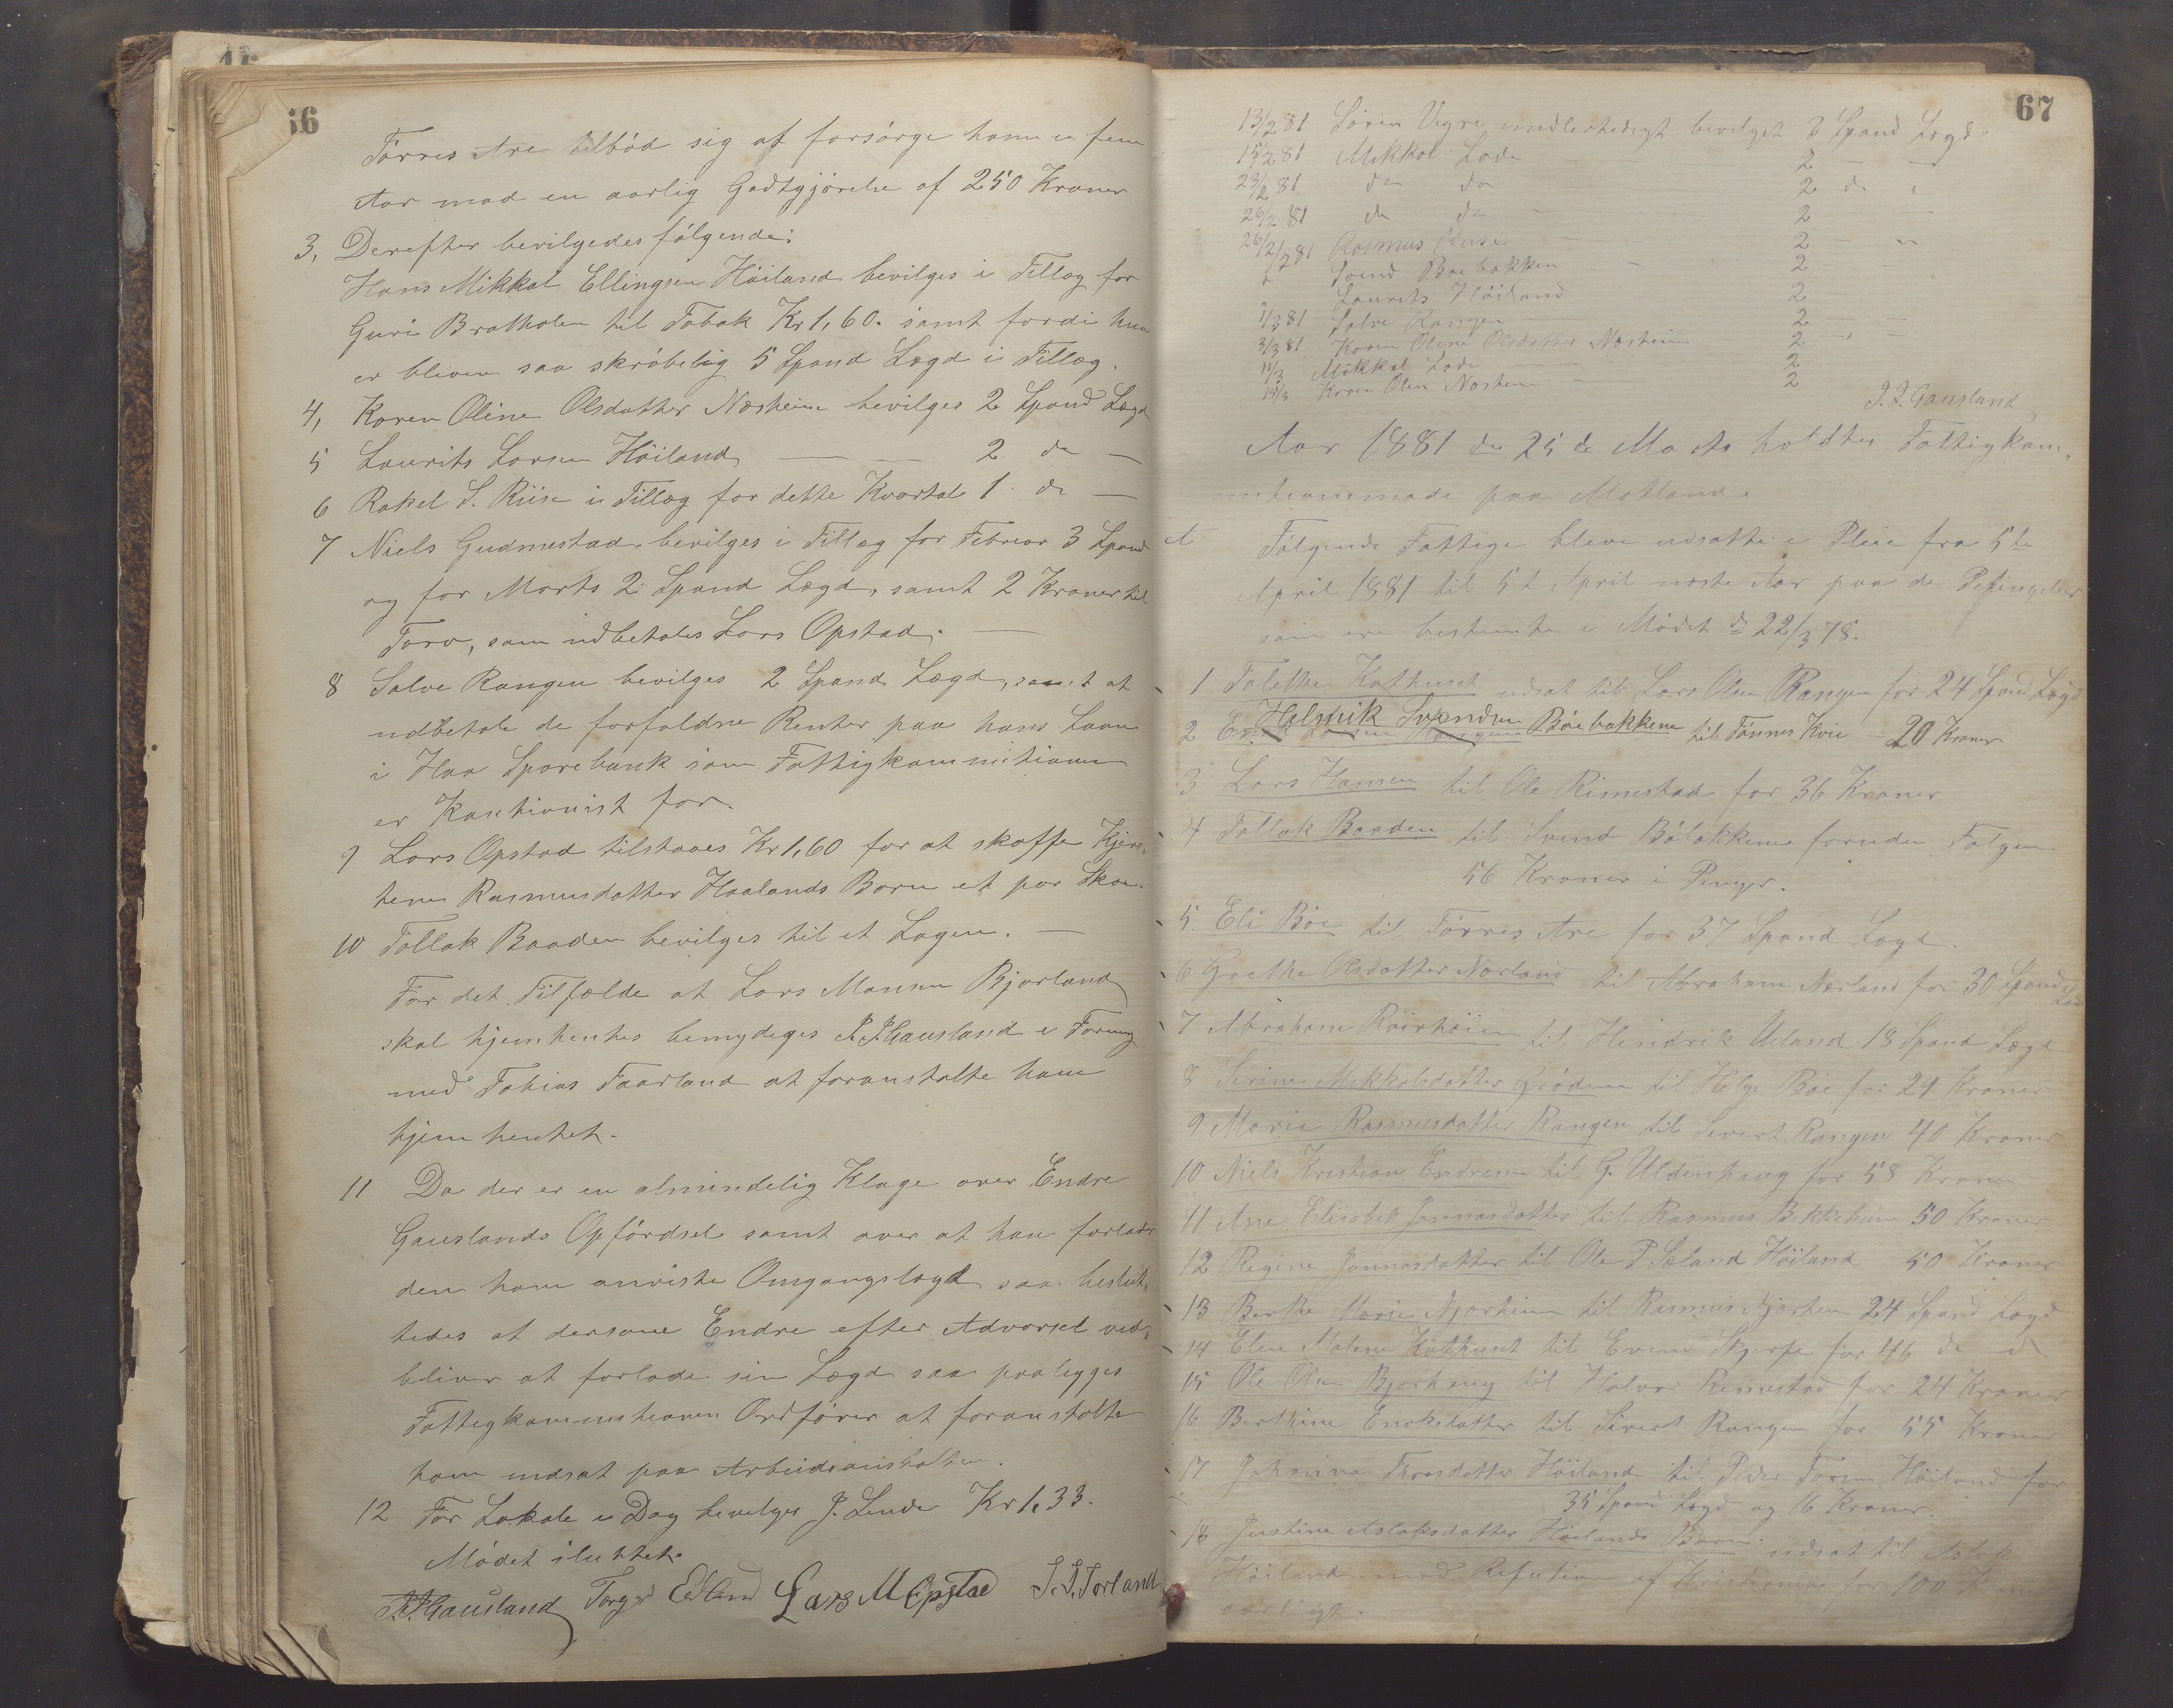 66
Törres Are tilbød sig at forsörge ham i fem
Aar mod en aarlig Godtgjörelse af 250 Kroner
3, Derefter bevilgedes fölgende:
Hans Mikkal Ellingsen Höiland bevilges i Tillæg for
Guri Bratholen til Tobak Kr 1,60. samt fordi hun
er bleven saa skröbelig 5 Spand Lægd i Tillæg.
4, Karen Oline Olsdatter Næsheim bevilges 2 Spand Lægd
5 Laurits Larsen Höiland — — 2 do —
6 Rakel S. Riise i Tillæg for dette Kvartal 1 do —
7 Niels Gudmestad bevilges i Tillæg for Februar 3 Spand
og for Marts 2 Spand Lægd, samt 2 Kroner til
Torv, som udbetales Lars Opstad. —
8 Salve Rangen bevilges 2 Spand Lægd, samt at
udbetale de forfaldne Renter paa hans Laan
i Haa Sparebank som Fattigkommitionen
er Kautionist for.
9 Lars Opstad tilstaaes Kr 1,60 for at skaffe Kjers-
tene Rasmusdatter Haalands Barn et par Skoe.
10 Tollak Baaden bevilges til et Lagen. —
For det Tilfælde at Lars Monsen Bjorland
skal hjemhentes bemydeges P. J. Gausland i Forening
med Tobias Taarland at foranstalte ham
hjem hentet.
11 Da der er en almindelig Klage over Endre
Gauslands Opfördsel samt over at han forlader
den ham anviste Omgangslægd saa beslut-
tedes at dersom Endre efter Advarsel ved-
bliver at forlade sin Lægd saa paalegges
Fattigkommitionens Ordförer at foranstalte
ham indsat paa Arbeidsanstalten.
12 For Lokale i Dag bevilges J. Linde Kr 1,33.
Mödet sluttet.
P. J. Gausland Torger Edland Lars M Opstad T. T. Torland
67
13/2 81 Sören Vigre midlertidigt bevilget 2 Spand Lægd
15/2 81 Mikkal Lode 2 — —
23/2 81 do do 2 do
26/2 81 do do 2 — —
26/2 81 Rasmus Riise 2 —
Svend Böebakken 2
Laurits Höiland 2
1/3 81 Salve Rangen 2 — —
3/3 81 Karen Oline Olsdatter Næsheim 2 —
11/3 Mikkal Lode 2
15/3 Karen Olin Næsheim 2
P. J. Gausland
Aar 1881 den 25de Marts holdtes Fattigkom-
mitionsmöde paa Motland.
A Fölgende Fattige bleve udsatte i Pleie fra 5te
April 1881 til 5t April næste Aar paa de Betingelser
som ere bestemte i Mödet d. 22/3 78.
1 Talette Kathuset udsat til Lars Olsen Rangen for 24 Spand Lægd
2 Helmik Svendsen Böebakkene til Tönnes Kvie — 20 Kroner
3 Lars Hansen til Ole Rimestad for 36 Kroner
4 Tollak Baaden til Svend Böbakkene foruden Folgen
56 Kroner i Penger.
5. Eli Böe til Törres Are for 37 Spand Lægd.
6 Grethe Olsdatter Nærland til Abraham Nærland for 30 Spand
7 Abraham til Hendrik Ueland 18 Spand Lægd
8 Serine Mikkalsdatter Grödem til Helge Böe for 29 Kroner
9 Marie Rasmusdatter Rangen til Sivert Rangen 40 Kroner
10 Niels Kristian Endresen til G. Uldenhaug for 58 Kroner
11 Ane Elisabet Jonnasdatter til Rasmus Bekkeheien 50 Kroner
12 Regine Jonnasdatter til Ole P. Saland Höiland 50 Kroner
13 Berthe Marie Njærheim til Rasmus Njærheim 24 Spand Lægd
14 Elen Malene Kathuset til Even Skjerpe for 46 do do
15 Ole Olsen Bjorhaug til Halvor Rimestad for 24 Kroner
16 Berthine Enoksdatter til Sivert Rangen for 55 Kroner
17 Höiland til Peder Höiland for
35 Spand Lægd og 16 Kroner.
18 Justine Aslaksdatter Höilands Barn udsat til Aslak
Höiland mod Refution af 100 Kroner
aarligt.